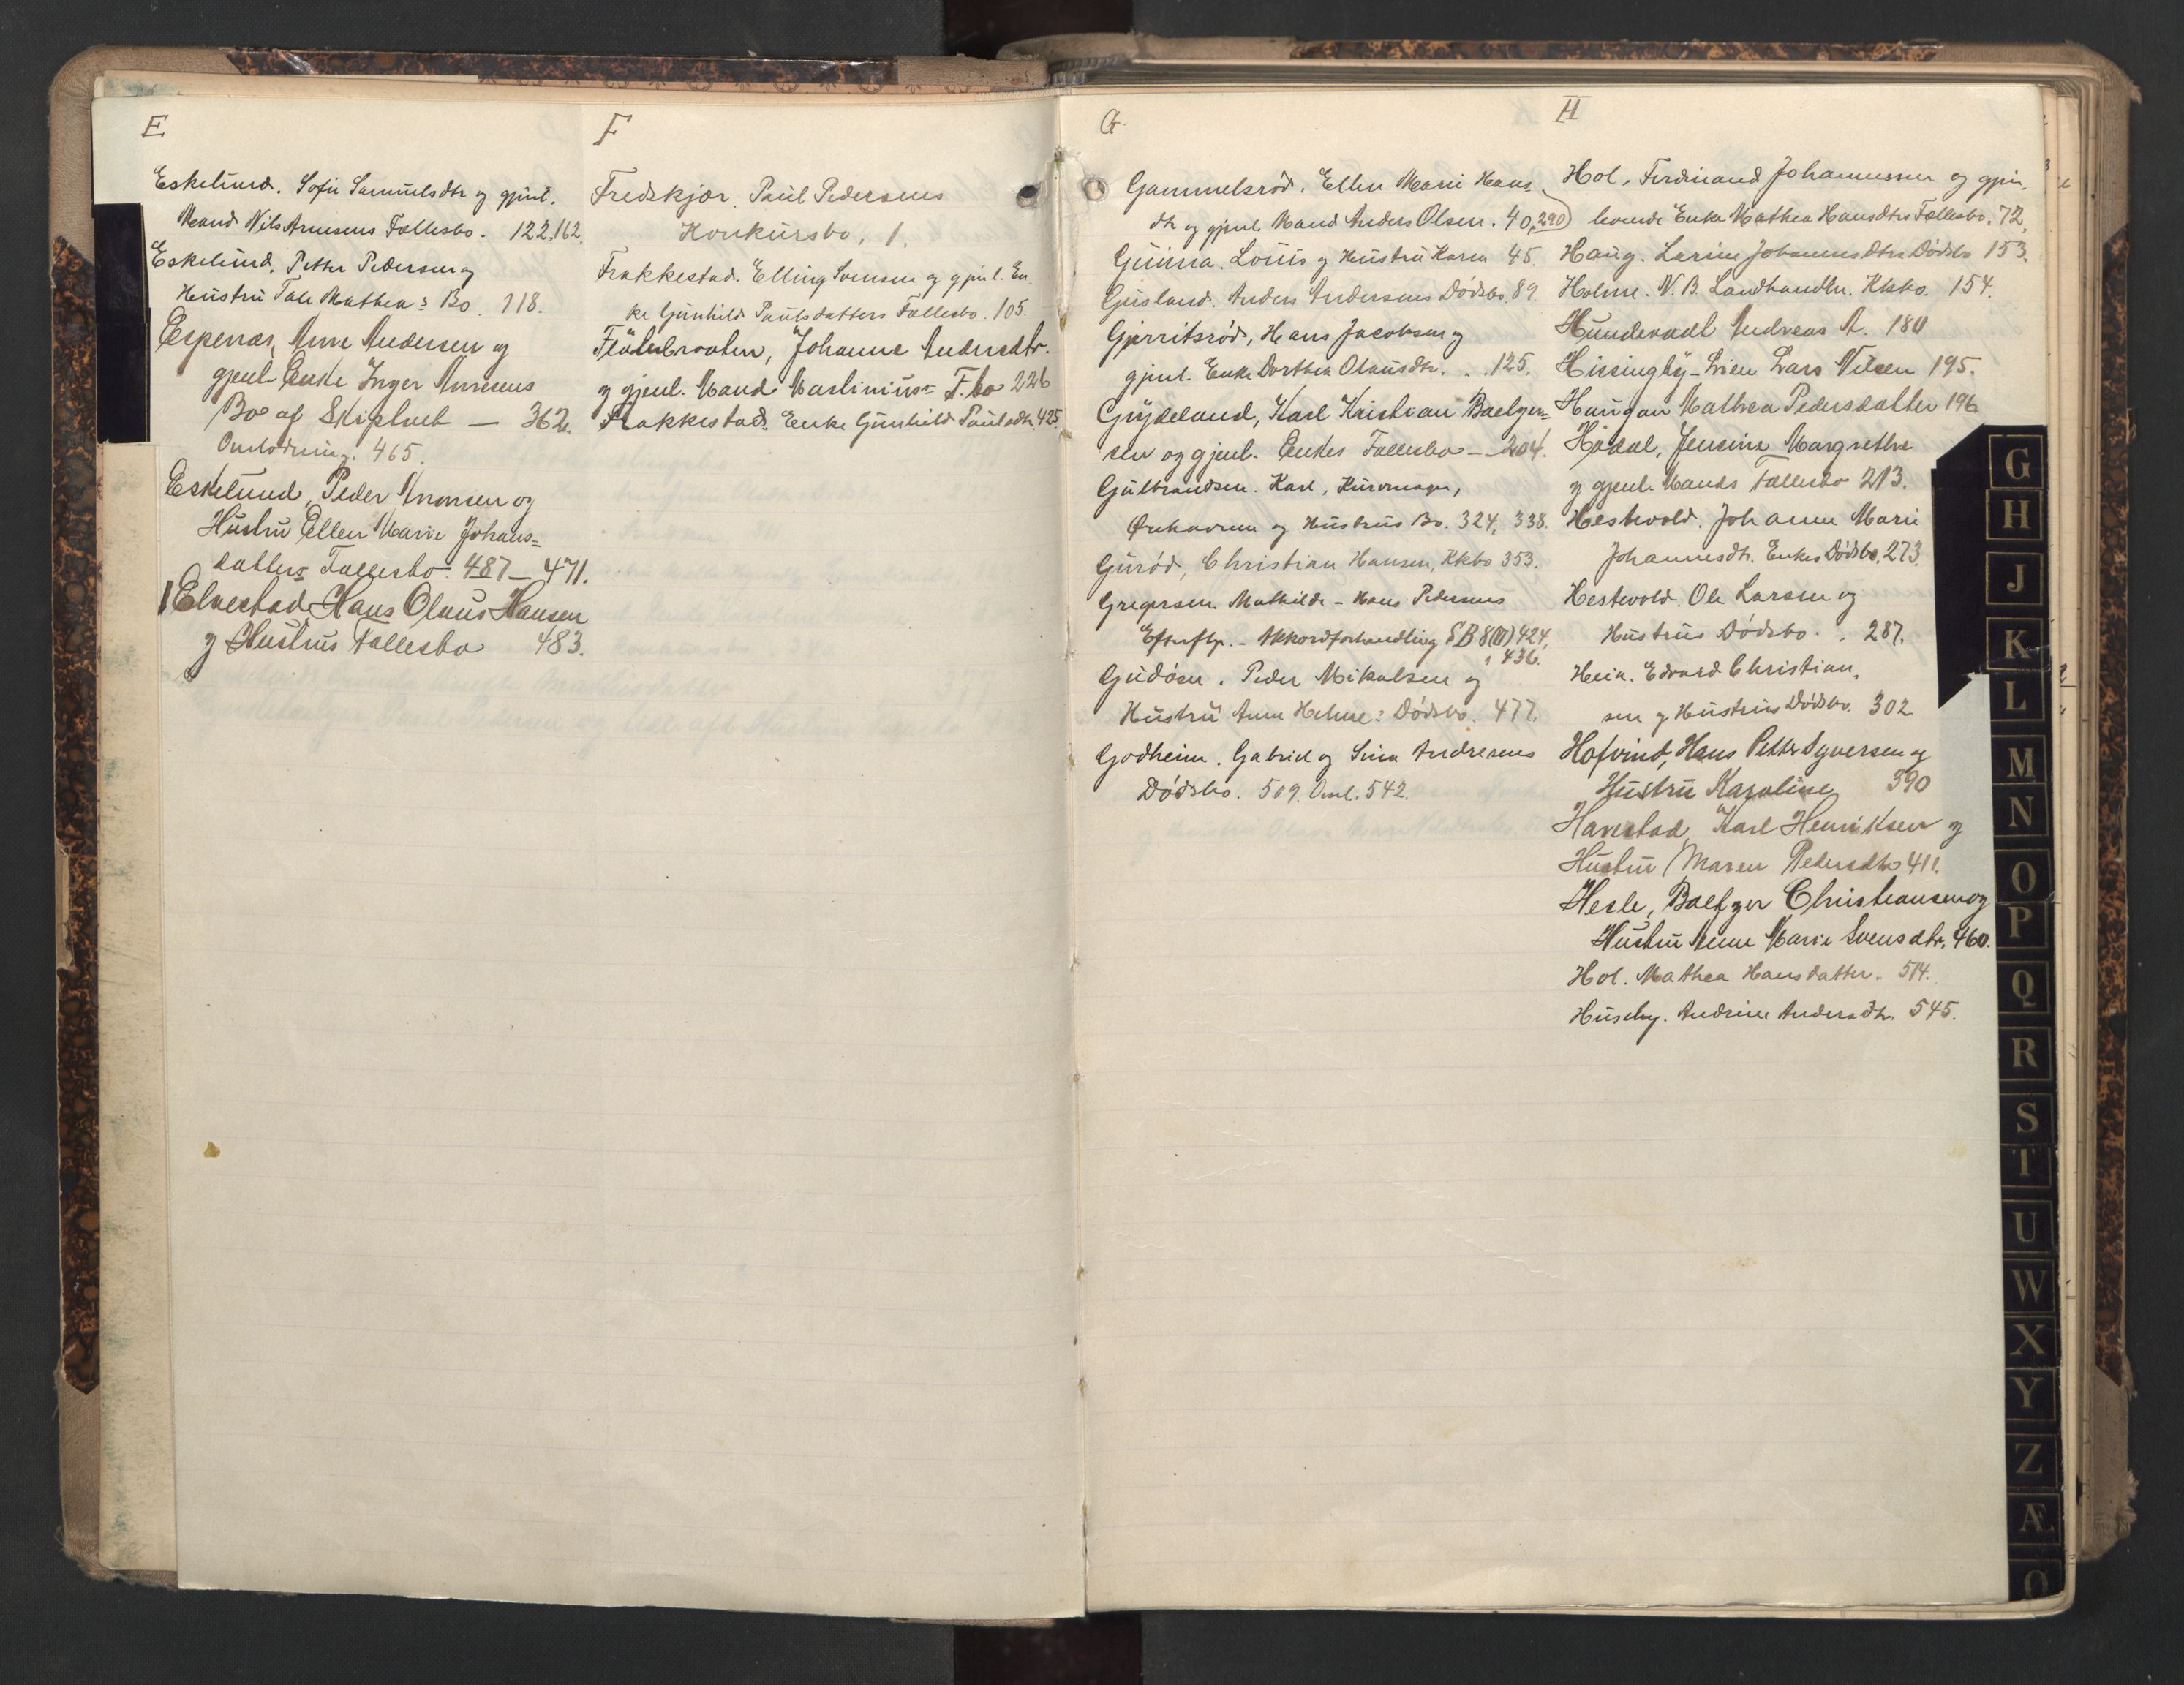 E
Eskelund. Sofie Samuelsdtr og gjenl.
Mand Nils Arnesens Fællesbo. 122.162.
Eskelund, Petter Pedersen og
Hustru Tale Mathea's Bo. 118.
Espenæs, Arne Andersen og
gjenl. Enke Inger Arnesens
Bo af Skiptvet — 362.
Omlodning. 465.
Eskelund, Peder Aronsen og
Hustru Ellen Marie Johans=
datters Fællesbo. 487 — 471.
Elvestad, Hans Olaus Hansen
og Hustrus Fællesbo 483.
F
Fredskjær. Paul Pedersens
Konkursbo, 1.
Frakkestad. Elling Svensen og gjenl. En.
ke Gunhild Paulsdatters Fællesbo. 105.
Fladebraaten, Johanne Andersdtr.
og gjenl. Mand Martinius's F.bo 226
Frakkestad. Enke Gunhild Paulsdtr. 425.
G
Gammelsrød. Ellen Marie Hans
dtr og gjenl. Mand Anders Olsen. 40, 290
Guima. Louis og Hustru Karen 45.
Gusland. Anders Andersens Dødsbo. 89.
Gjerritsrød, Hans Jacobsen og
gjenl. Enke Dorthea Olausdtr. . . 125.
Grydeland, Karl Kristian Baelger=
sen og gjenl. Enkes Fællesbo — 204.
Gulbrandsen. Karl, Kurvmager,
Ørkavren og Hustrus Bo. 324, 338.
Gurød, Christian Hansen, Kkbo 353.
Gregersen Mathilde - Hans Pedersens
Efterflg. - Akkordforhandling S B 8 (VI) 424,
" 436.
Gudøen. Peder Mikalsen og
Hustru Anne Helene's Dødsbo. 477.
Godheim. Gabriel og Sina Andresens
Dødsbo. 509. Oml. 542.
H
Hol, Ferdinand Johannessen og gjen.
levende Enke Mathea Hansdtrs Fællesbo. 72,
Haug. Larine Johannesdtrs Dødsbo 153.
Holme. N. B. Landhandler. Kkbo. 154.
Hundevadt Andreas A. 180
Hissingby-Lien Lars Nilsen 195.
Haugan Mathea Pedersdatter 196
Hødal, Jensine Margrethe
og gjenl. Mands Fællesbo 213.
Hestevold. Johanne Marie
Johannesdtr. Enkes Dødsbo. 273.
Hestevold. Ole Larsen og
Hustrus Dødsbo. . 287.
Heia. Edvard Christian.
sen og Hustrus Dødsbo. 302
Hofvind, Hans Petter Syversen og
Hustru Karoline 390
Harestad, Karl Henriksen og
Hustru Maren Pedersdtr 411.
Hesle, Baelger Christiansen og
Hustru Anne Marie Svensdtr. 460.
Hol. Mathea Hansdatter. 514.
Huseby. Andrine Andersdtr. 545.
G
H
J
K
L
M
N
O
P
Q
R
S
T
U
W
X
Y
Z
Æ